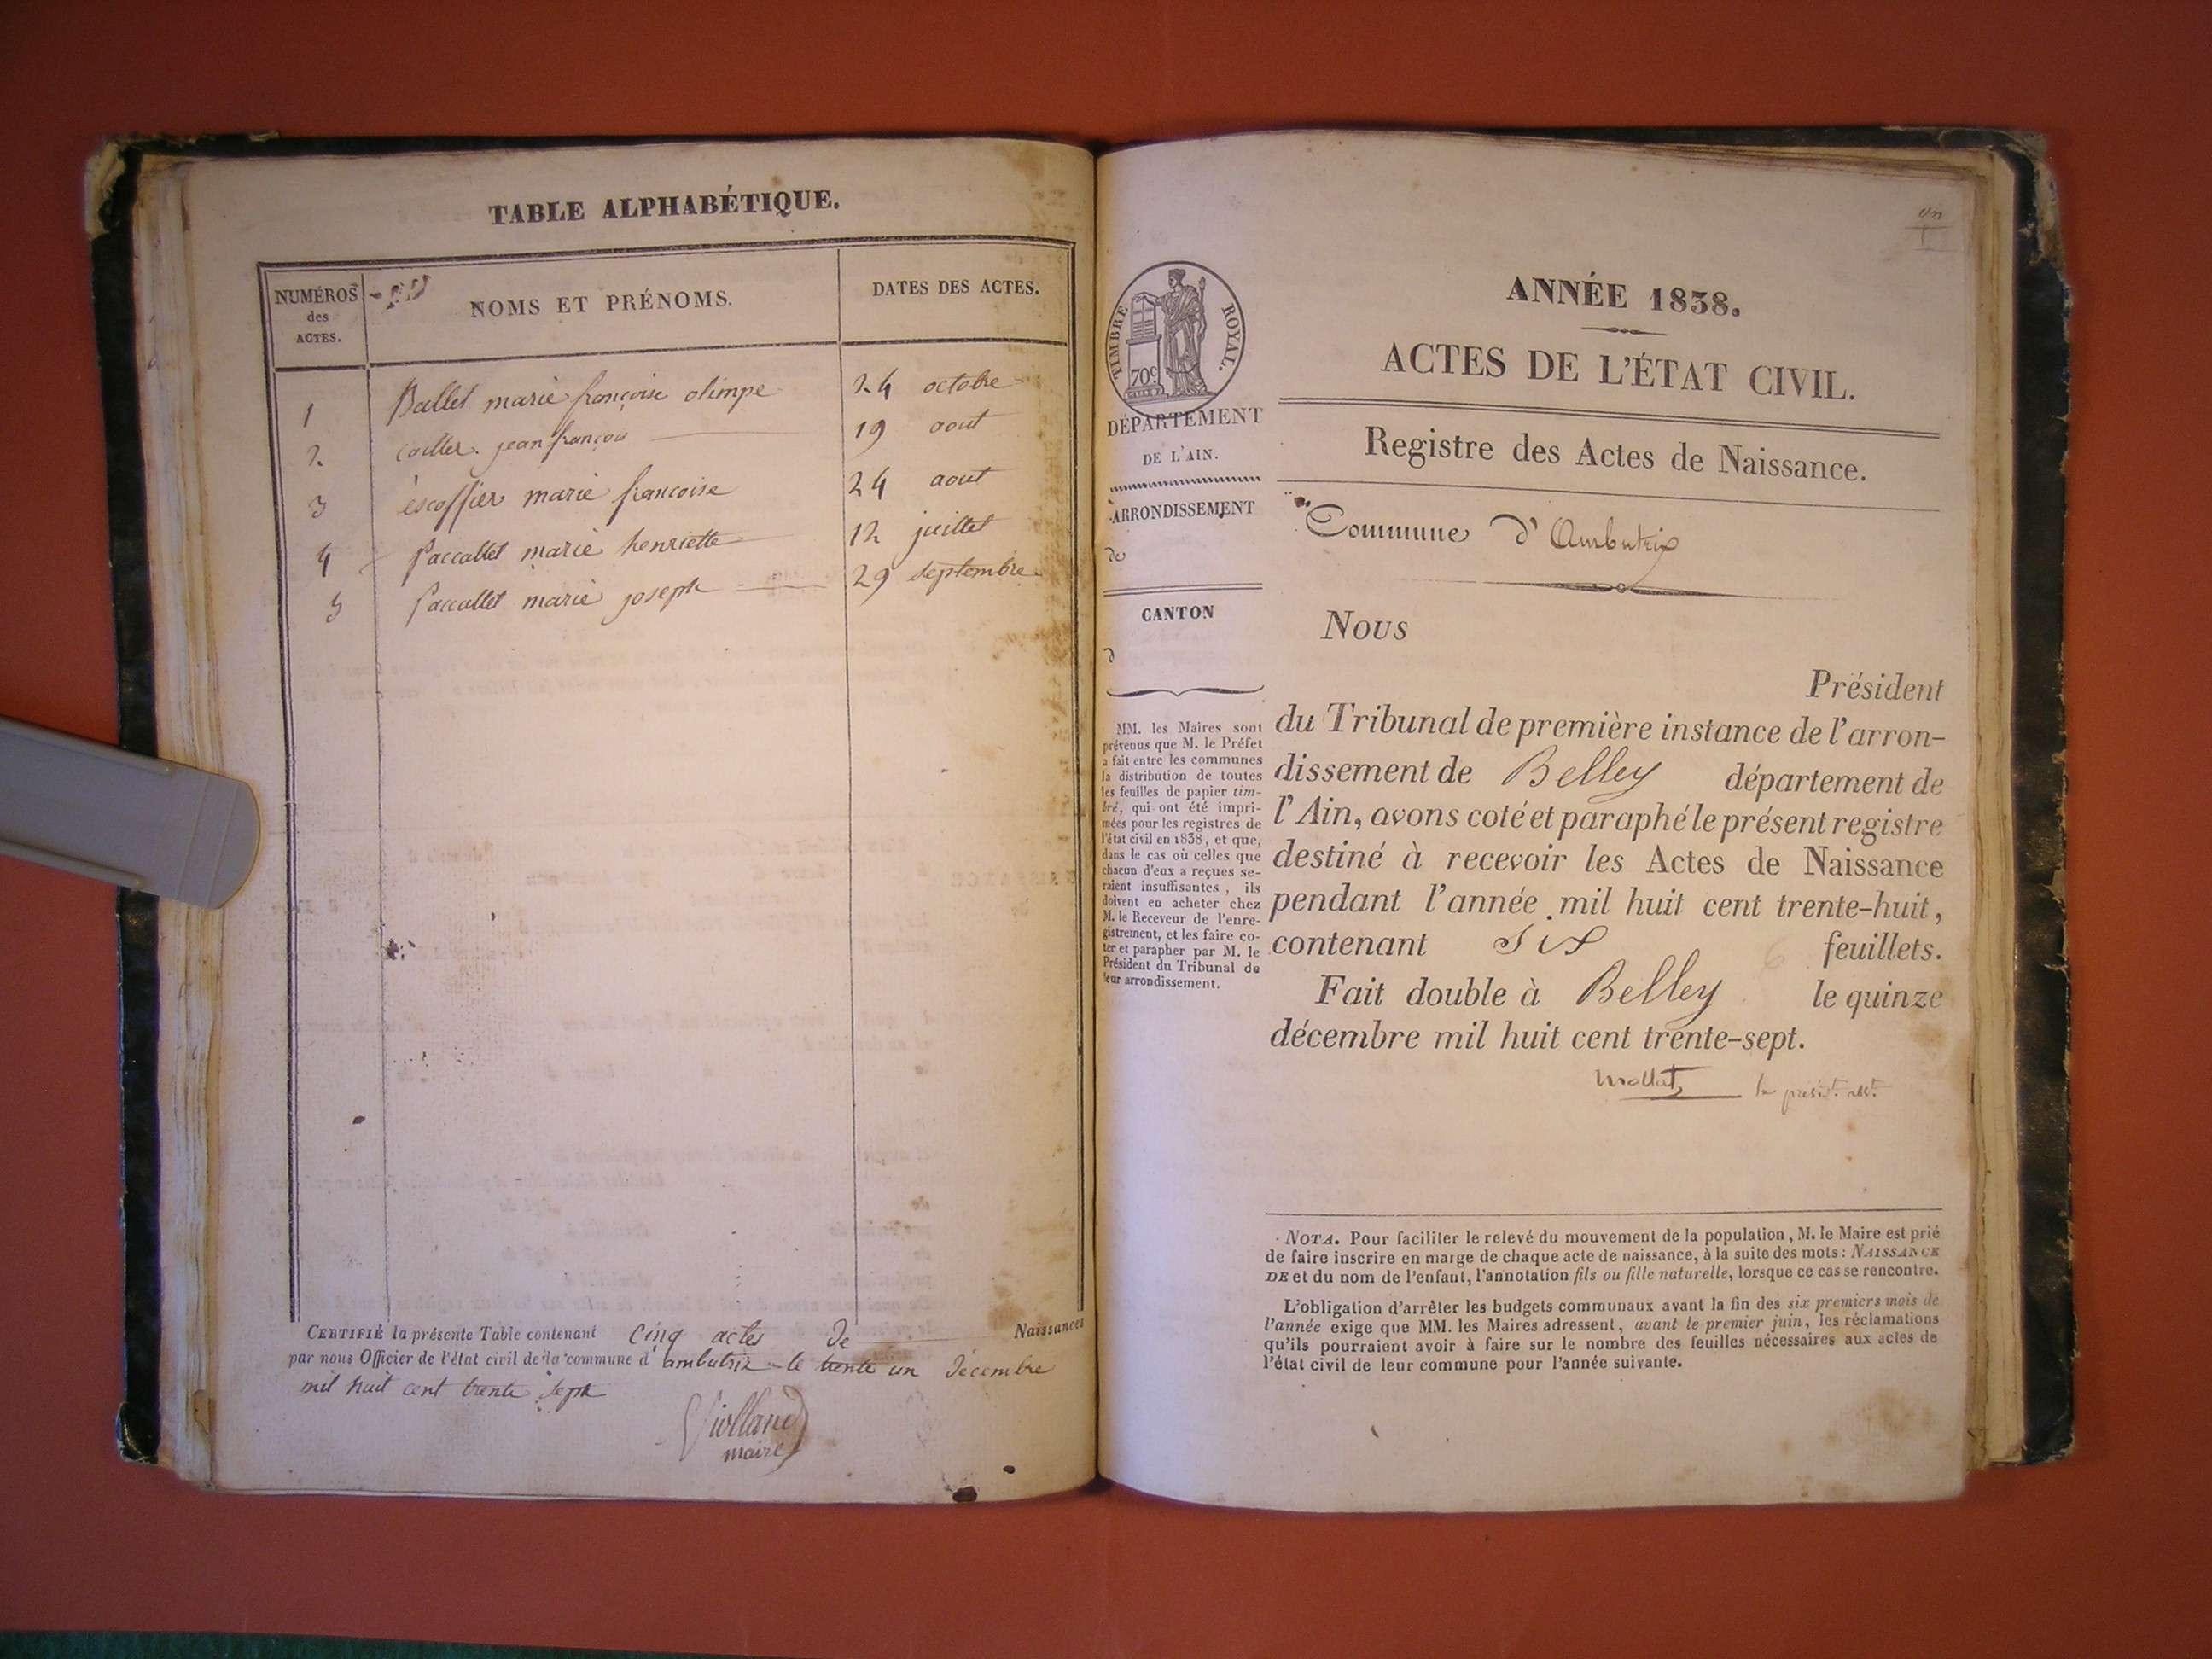 TABLE ALPHABÉTIQUE.
NUMÉROS
des
ACTES.
NOMS ET PRÉNOMS.
DATES DES ACTES.
1 Ballet marie françoise olimpe 24 octobre
2 Cailler jean françois 19 aout
3 escoffier marie francoise 24 aout
4 Paccallet marie henriette 12 juillet
5 Paccallet marie joseph 29 septembre
CERTIFIÉ la présente Table contenant Cinq actes De Naissances
par nous Officier de l'état civil de la commune d' ambutrix le trente un Décembre
mil huit cent trente sept
maire
ANNÉE 1838.
ACTES DE L'ÉTAT CIVIL.
Registre des Actes de Naissance.
Commune d' Ambutrix
TIMBRE ROYAL.
70c
DÉPARTEMENT
DE L'AIN.
ARRONDISSEMENT
de
CANTON
d
MM. les Maires sont
prévenus que M. le Préfet
a fait entre les communes
la distribution de toutes
les feuilles de papier tim-
bré, qui ont été impri-
mées pour les registres de
l'état civil en 1838, et que,
dans le cas où celles que
chacun d'eux a reçues se-
raient insuffisantes, ils
doivent en acheter chez
M. le Receveur de l'enre-
gistrement, et les faire co-
ter et parapher par M. le
Président du Tribunal de
leur arrondissement.
Nous
Président
du Tribunal de première instance de l'arron-
dissement de Belley département de
l'Ain, avons coté et paraphé le présent registre
destiné à recevoir les Actes de Naissance
pendant l'année mil huit cent trente-huit,
contenant Six feuillets.
Fait double à Belley le quinze
décembre mil huit cent trente-sept.
NOTA. Pour faciliter le relevé du mouvement de la population, M. le Maire est prié
de faire inscrire en marge de chaque acte de naissance, à la suite des mots: NAISSANCE
DE et du nom de l'enfant, l'annotation fils ou fille naturelle, lorsque ce cas se rencontre.
L'obligation d'arrêter les budgets communaux avant la fin des six premiers mois de
l'année exige que MM. les Maires adressent, avant le premier juin, les réclamations
qu'ils pourraient avoir à faire sur le nombre des feuilles nécessaires aux actes de
l'état civil de leur commune pour l'année suivante.